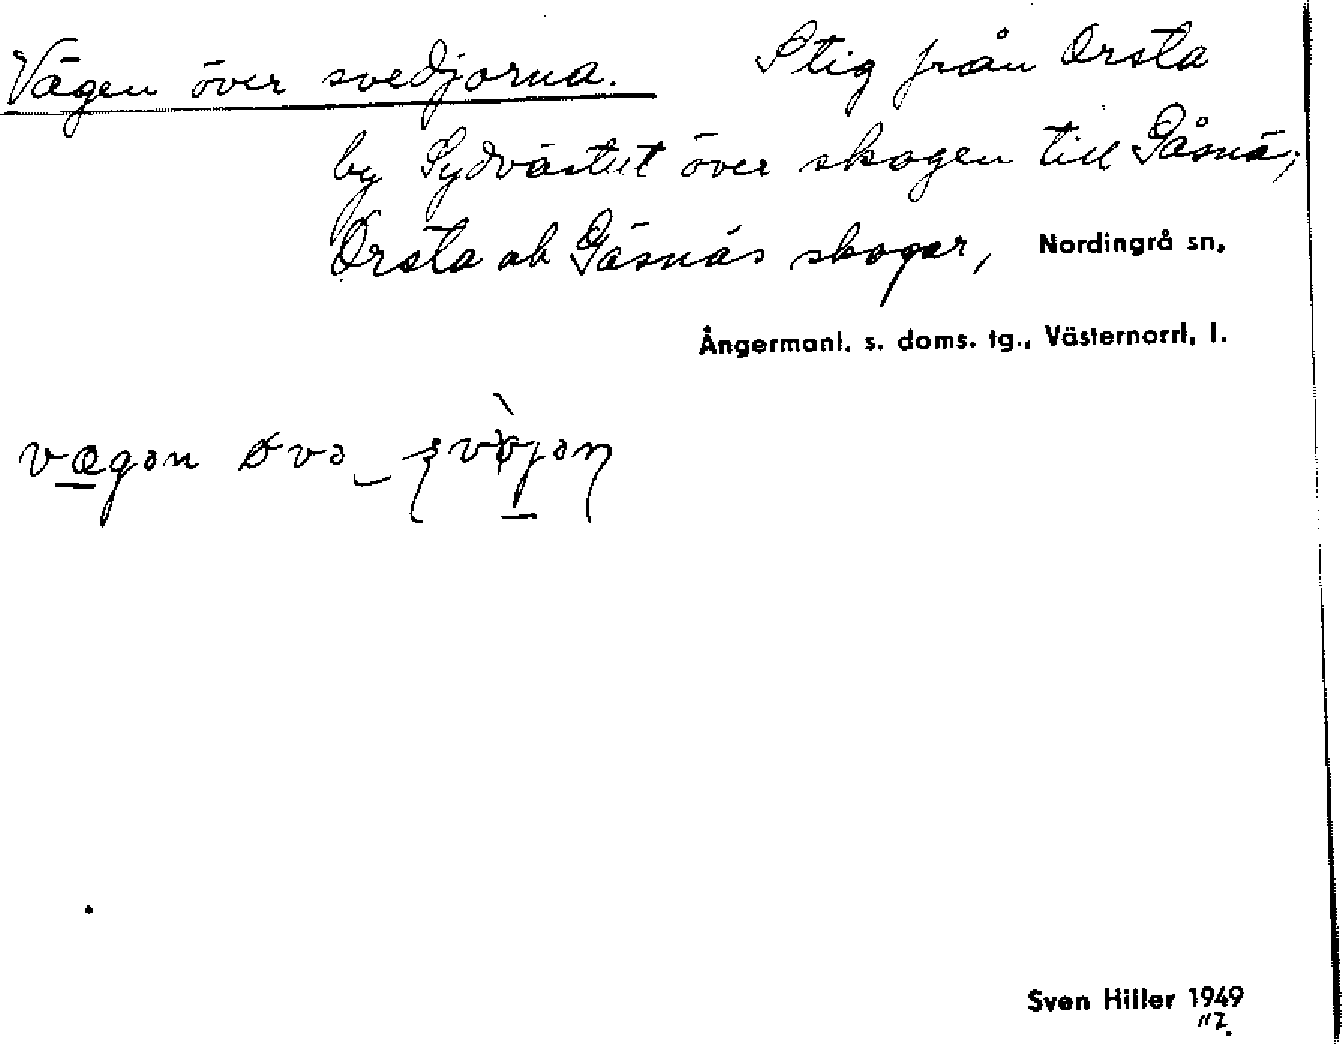 Vägen över svedjorna. Stig från Orsta
by Sydvästut över skogen till Gåsnäs;
Orsta ok Gåsnäs skogar, Nordingrå sn,
Ångermanl. s. doms. tg., Västernorrl. l.
Sven Hiller 1949